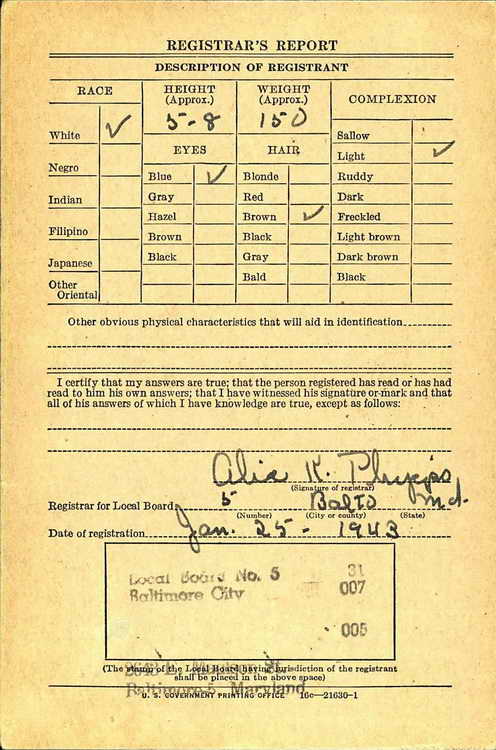 REGISTRAR'S REPORT
DESCRIPTION OF REGISTRANT
RACE
HEIGHT (Approx.)
WEIGHT (Approx.)
COMPLEXION
5-8
150
White ✓
Negro
Indian
Filipino
Japanese
Other Oriental
EYES
Blue ✓
Gray
Hazel
Brown
Black
HAIR
Blonde
Red
Brown ✓
Black
Gray
Bald
Sallow
Light ✓
Ruddy
Dark
Freckled
Light brown
Dark brown
Black
Other obvious physical characteristics that will aid in identification
I certify that my answers are true; that the person registered has read or has had
read to him his own answers; that I have witnessed his signature or mark and that
all of his answers of which I have knowledge are true, except as follows:
K.
(Signature of registrar)
Registrar for Local Board 5 Balto Md.
(Number) (City or county) (State)
Date of registration Jan. 25 - 1943
Local Board No. 5 31
Baltimore City 007
005
(The stamp of the Local Board having jurisdiction of the registrant
shall be placed in the above space)
St
Baltimore 5, Maryland
U. S. GOVERNMENT PRINTING OFFICE 16c—21630-1